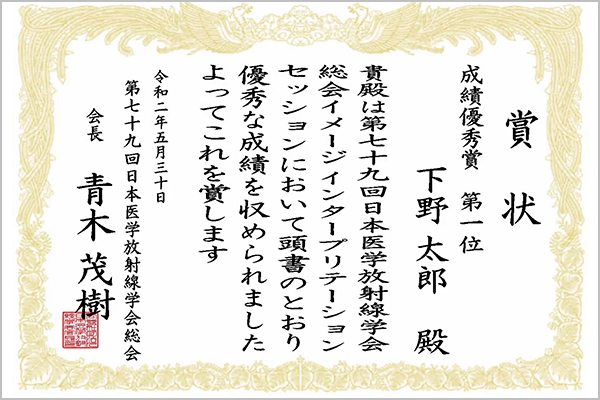 賞状
成績優秀賞 第一位
下野太郎 殿
貴殿は第七十九回日本医学放射線学会
総会イメージインタープリテーション
セッションにおいて頭書のとおり
優秀な成績を収められました
よってこれを賞します
令和二年五月三十日
第七十九回日本医学放射線学会総会
会長 青木茂樹